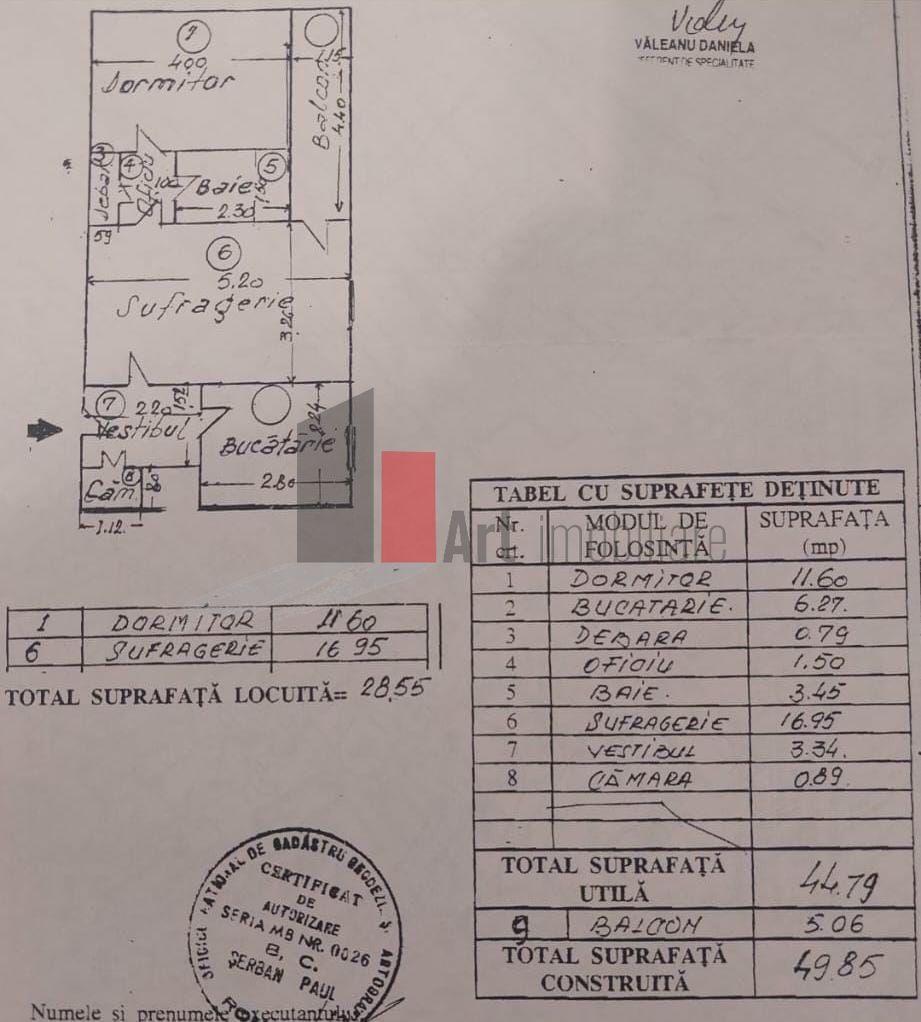 VĂLEANU DANIELA
REFERENT DE SPECIALITATE
1
400
Dormitor
Balcon
1.15
4.40
3
Debara
59
4
Oficiu
100
5
Baie
150
2.30
6
5.20
Sufragerie
3.26
7
220
152
Vestibul
Bucătărie
224
2.80
8
Căm.
80
1.12
Art imobiliare
1 DORMITOR 11.60
6 SUFRAGERIE 16.95
TOTAL SUPRAFAȚĂ LOCUITĂ= 28,55
TABEL CU SUPRAFEȚE DEȚINUTE
Nr. crt. MODUL DE FOLOSINȚĂ SUPRAFAȚA (mp)
1 DORMITOR 11.60
2 BUCATARIE. 6.27.
3 DEBARA 0.79
4 OFICIU 1.50
5 BAIE. 3.45
6 SUFRAGERIE 16.95
7 VESTIBUL 3.34.
8 CĂMARA 0.89.
TOTAL SUPRAFAȚĂ UTILĂ 44.79
9 BALCON 5.06
TOTAL SUPRAFAȚĂ CONSTRUITĂ 49.85
CERTIFICAT
DE
AUTORIZARE
SERIA MB NR. 0026
B, C.
ȘERBAN PAUL
Numele și prenumele executantului